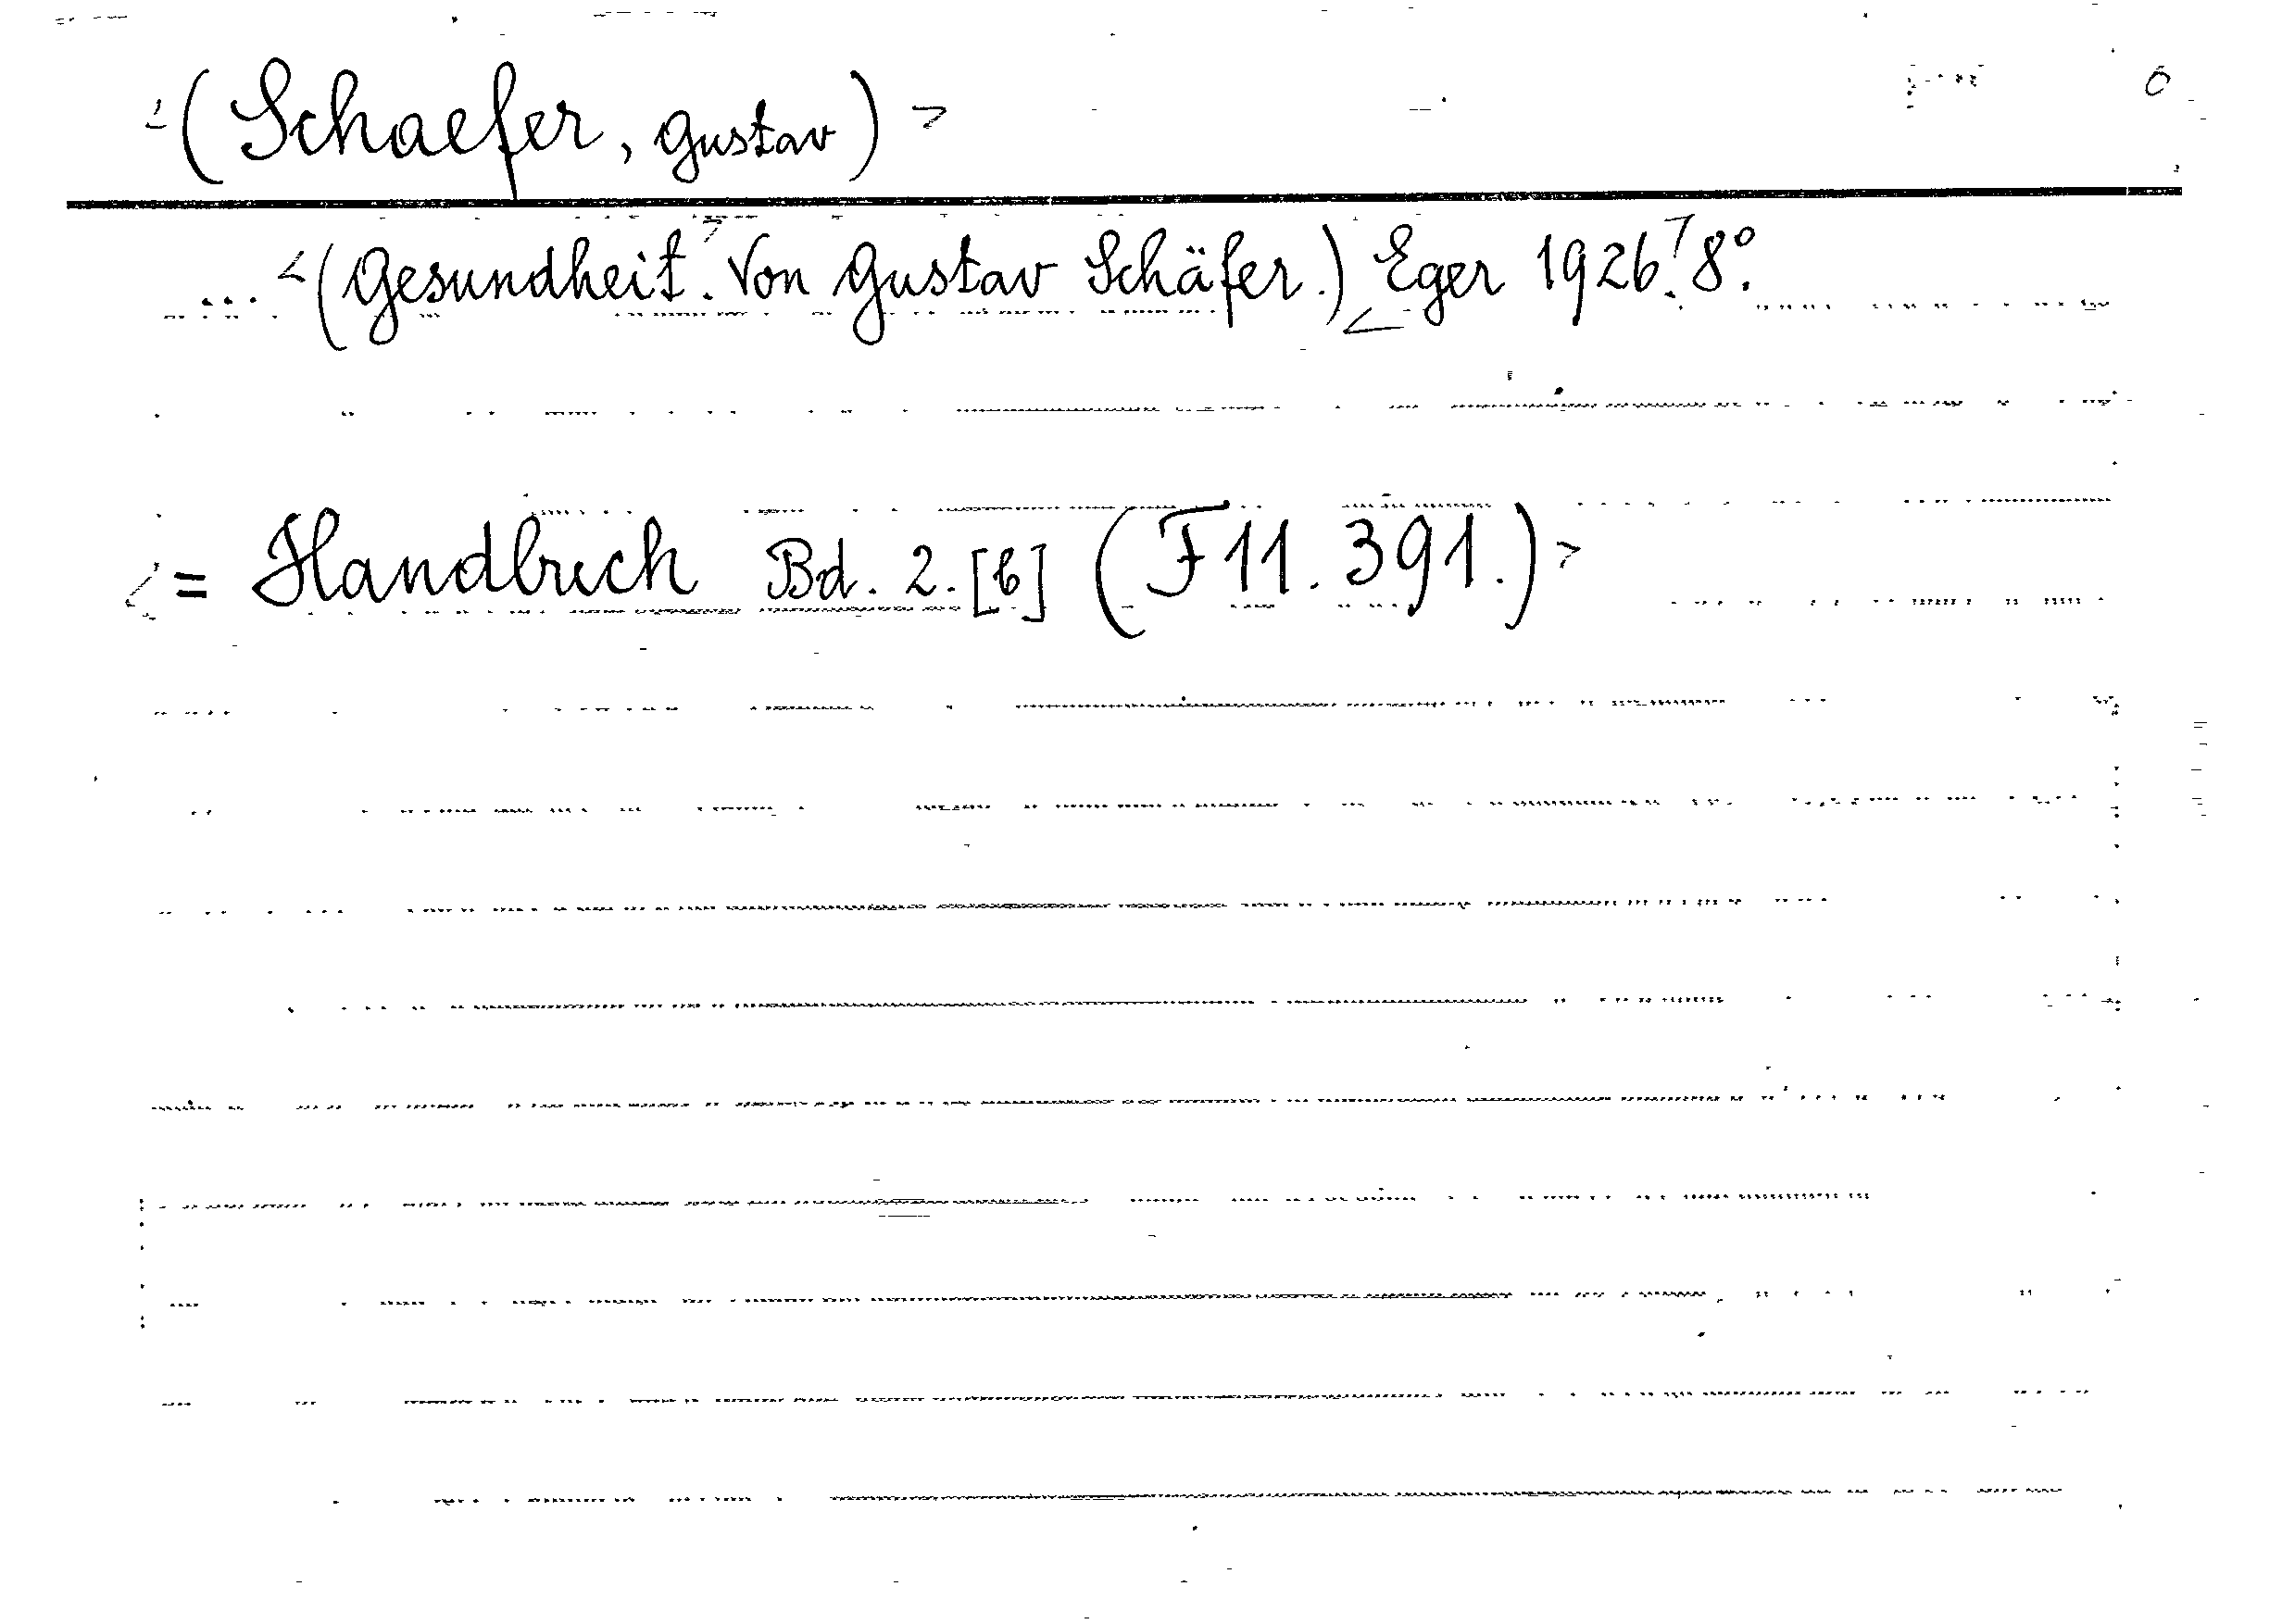 <(Schaefer, Gustav)>
... <(Gesundheit.> Von Gustav Schäfer.) <Eger 1926.> 8°.
<= Handbuch Bd. 2. [b] (F11. 391.)>